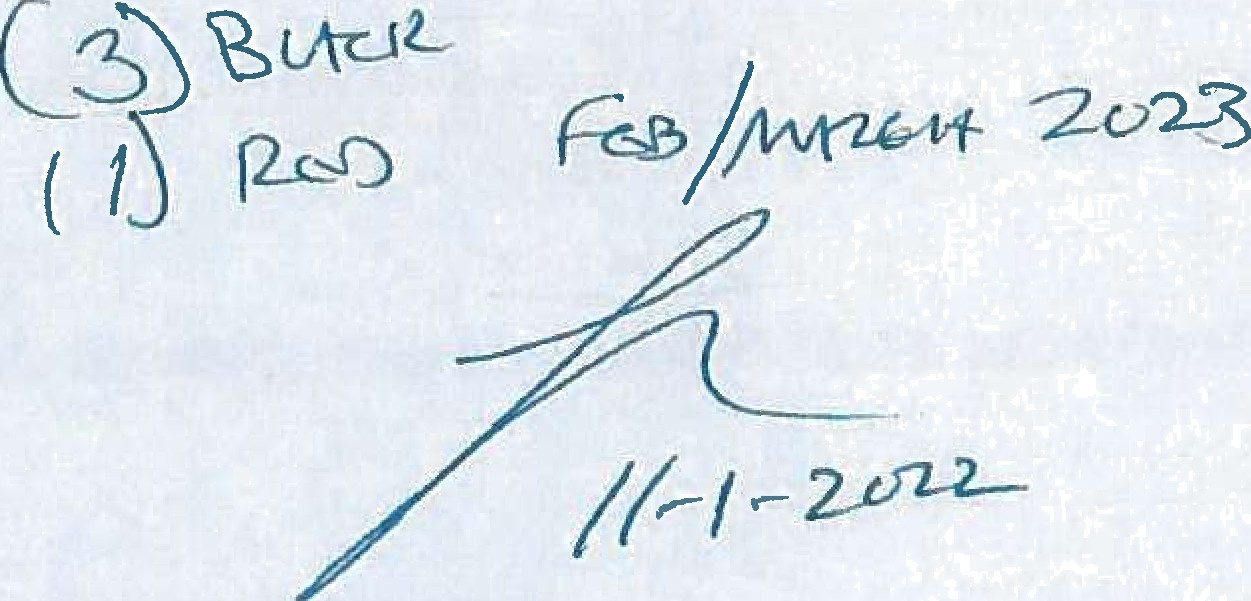 (3) BLACK
(1) RED
FEB/MARCH 2023
11-1-2022